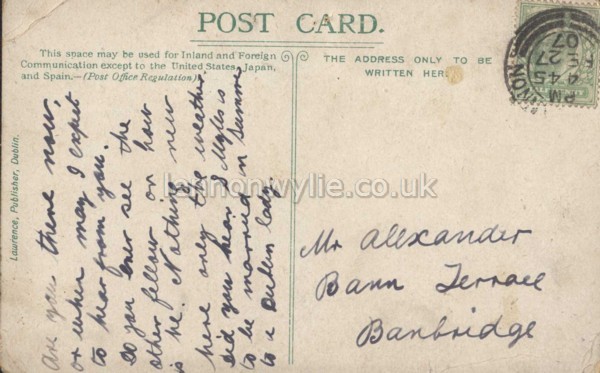 POST CARD.
This space may be used for Inland and Foreign
Communication except to the United States, Japan,
and Spain.—(Post Office Regulation)
THE ADDRESS ONLY TO BE
WRITTEN HERE
Lawrence, Publisher, Dublin.
Are you there now,
or when may I expect
to hear from you.
Do you ever see the
other fellow or how
is he. Nothing new
here only the weather.
Did you hear J Myles is
to be married in Summer
to a Dublin lady.
Mr Alexander
Bann Terrace
Banbridge
4 45 PM
FE 27
07
lennonwylie.co.uk